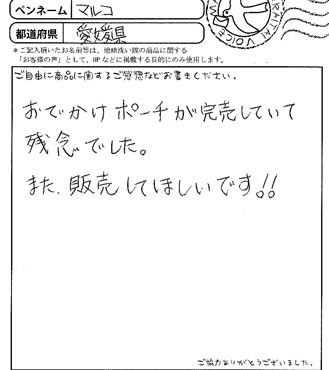 ペンネーム マルコ
都道府県 愛媛県
＊ご記入頂いたお名前等は、地球洗い隊の商品に関する
「お客様の声」として、HPなどに掲載する目的にのみ使用します。
ご自由に商品に関するご感想などお書きください。
おでかけポーチが完売していて
残念でした。
また、販売してほしいです!!
ご協力ありがとうございました。